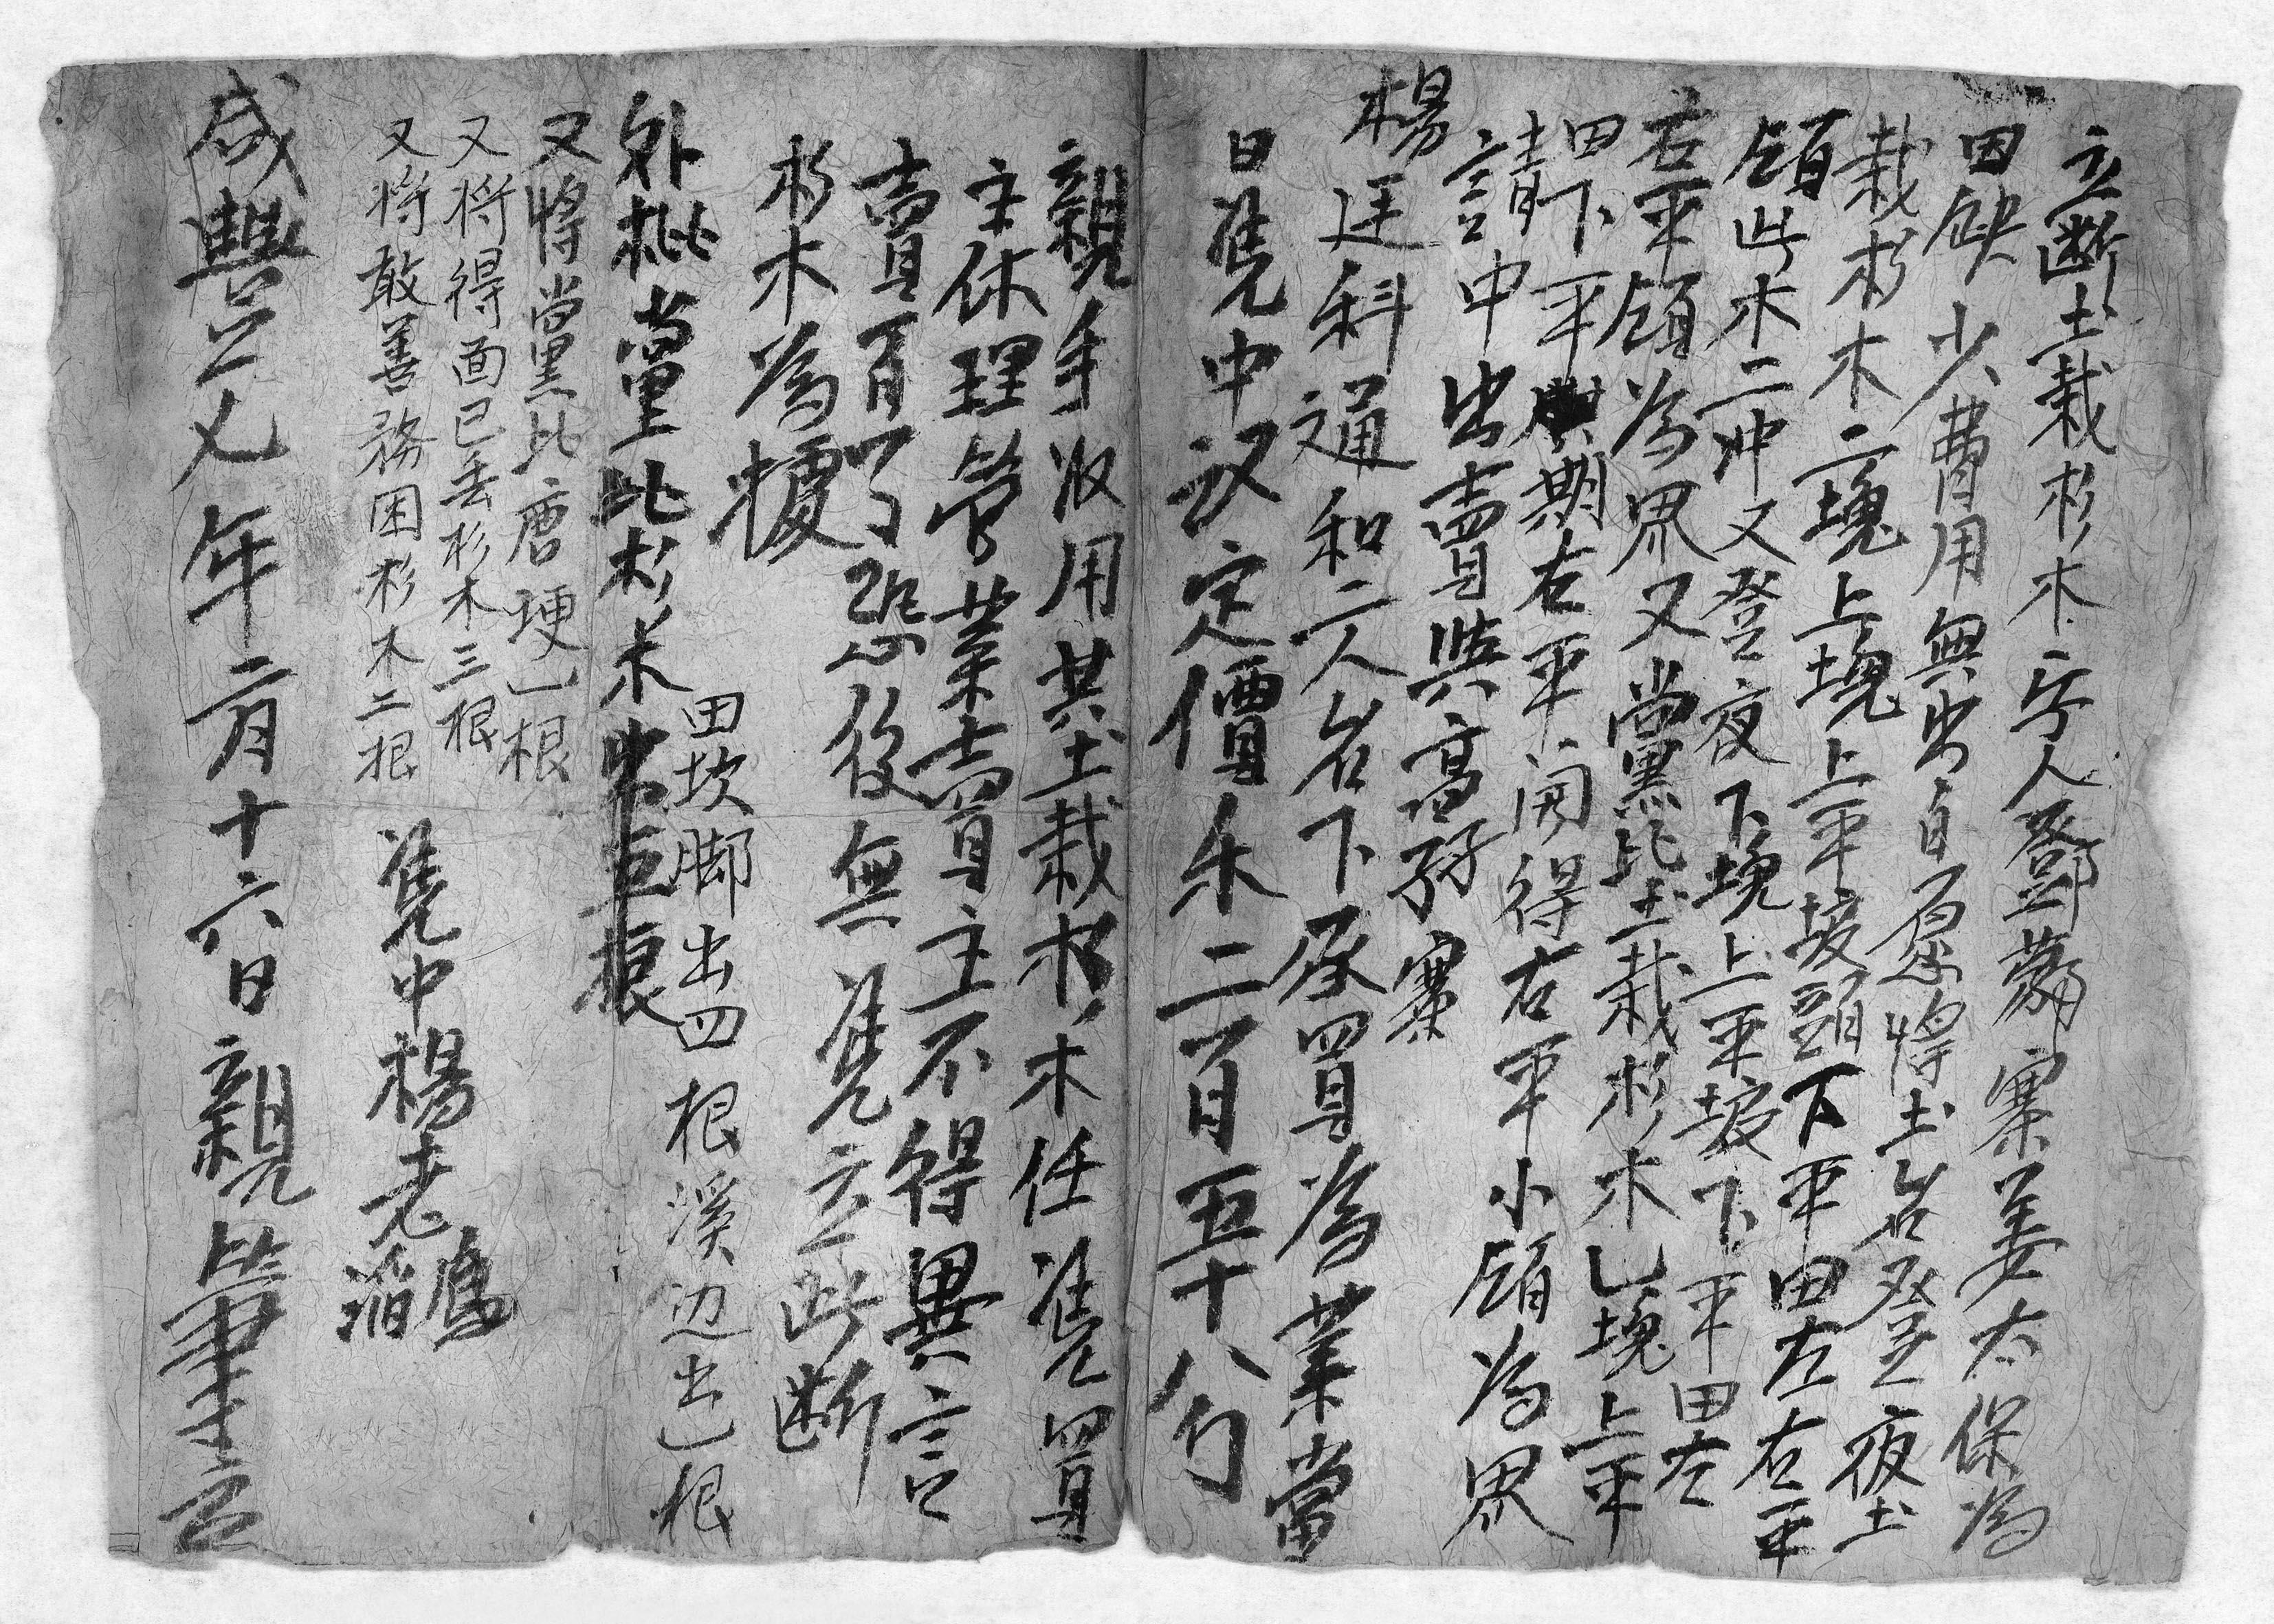 立断土栽杉木字人鄧䓣寨姜太保為
因缺少費用無出自愿將土名登夜土
栽杉木二塊上塊上平坡頭下平田左右平
領此木二冲又登夜下塊上平坡下平田左
右平領為界又尚黑比土栽杉木乚塊上平
田下平期右平闲得右平小領為界
請中出賣與高孖寨
楊廷科通和二人名下承買為業當
日凭中议定價禾二百五十八勺
親手收用其土栽杉木任凭買
主休理管業賣主不得異言
賣了恐後無凭立此断
杉木為㯗
田坎脚出四根溪边出乚根
外批尚里比杉木出五根
又將尚黑比唐埂乚根
又将得面已丢杉木三根
又將敢善務困杉木二根
凭中楊老滔 鳫
咸豐乙夘年二月十六日親筆立